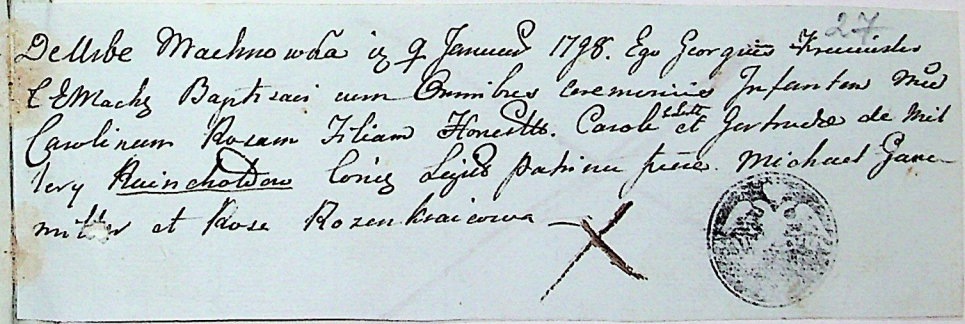 27
De Urbe Machnowka 19 Januarii 1798. Ego Georgius
Baptisavi cum Omnibus ceremoniis Infantem
Carolinam Rosam Filiam Honestto. Caroli et Gertrudae de Mil
lery Reincholdow Coniug Legit patrini fuere. Michael Gare
et Rosa Rozenkraicowa